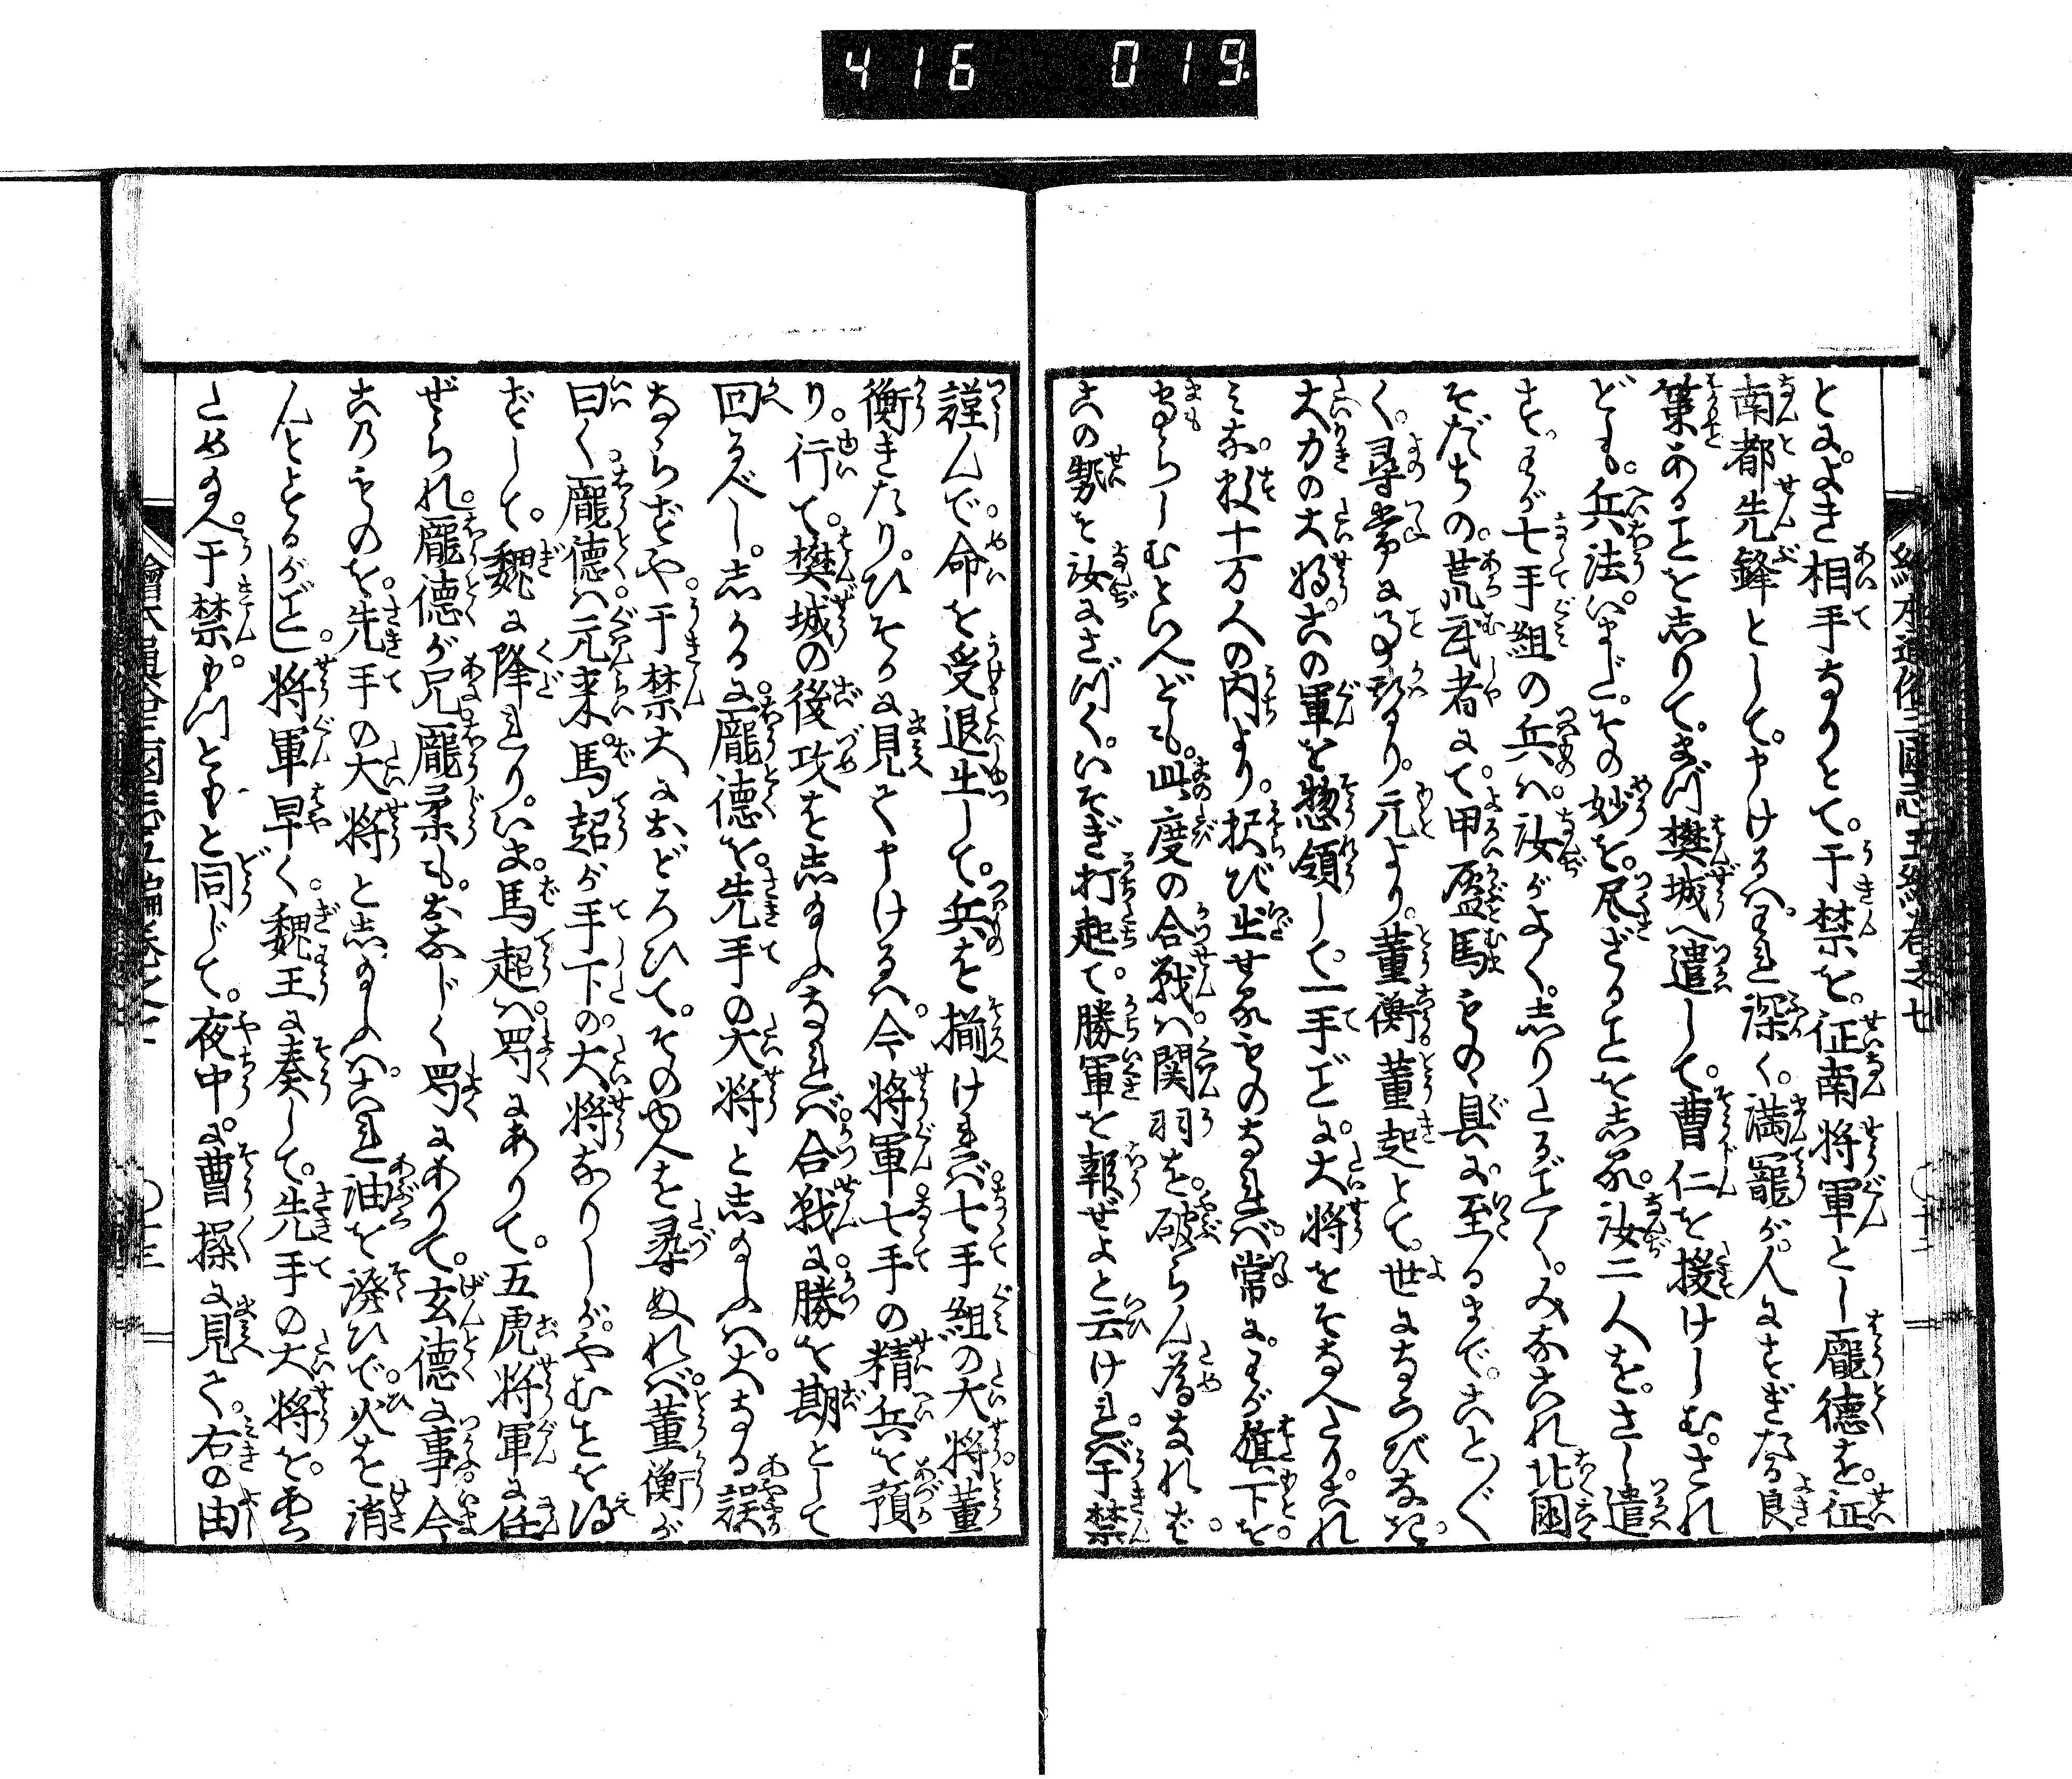 416 019
とによき相手なりとて。于禁を。征南将軍とし龐徳を。征
南都先鋒として。申けるハ。われ深く。満寵が。人にすぎたる良
策あることを志りて。まづ樊城へ遣して。曹仁を援けしむ。され
ども。兵法。いまだ。その妙を。尽ざることを志る。汝二人を。さし遣
す。わが七手組の兵ハ。汝がよく。志りたるごとく。みなこれ北國
そだちの。荒武者にて。甲盔馬ものゝ具に至るまで。こと〴〵
く。尋常にことなり。元より。董衡董起とて。世にならびなき。
大力の大将。この軍を惣領して。一手ごとに。大将をそなへたり。これ
みな。数十万人の内より。択び出せるものなれバ。常に。わが旗下を。
守らしむといへども。此度の合戦ハ。関羽を。破らん為なれば。
この勢を汝にさづく。いそぎ打起て。勝軍を報ぜよと云けれバ。于禁
謹んで。命を受退出して。兵を揃けれバ。七手組の大将。董
衡きたり。ひそかに見えて申けるハ。今将軍。七手の精兵を預
り。行て。樊城の後攻を志給ふなれバ。合戦に。勝を期として
回るべし。志かるに。龐徳を。先手の大将と志給ふハ。大なる誤
ならずや。于禁大におどろひて。そのゆへを尋ぬれバ。董衡が
曰く。龐徳ハ。元来。馬超が手下の。大将なりしが。やむことを得
ずして。魏に降れり。いま。馬超ハ。蜀にありて。五虎将軍に任
ぜられ。龐徳が兄龐柔も。おなじく蜀にありて。玄徳に事今
このものを。先手の大将と志給ふハ。これ油を潑ひで。火を消
んとするがごとし。将軍早く。魏王に奏して。先手の大将を。云
とめ給へ。于禁。げにもと同じて。夜中に曹操に見え。右の由